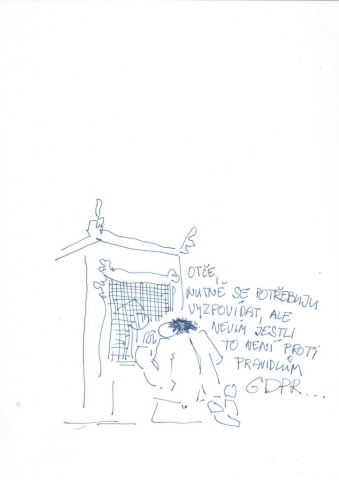 OTČE,
NUTNĚ SE POTŘEBUJU
VYZPOVÍDAT, ALE
NEVÍM JESTLI
TO NENÍ PROTI
PRAVIDLŮM
GDPR...